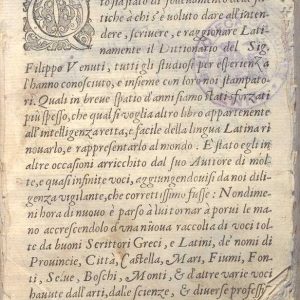 to sia stato di
tiche a chi s'è voluto dare all'inten
dere, scriuere, e raggionare Lati-
namente il Dittionario del Sig.
Filippo Venuti, tutti gli studiosi per esperienza
l'hanno conosciuto, e insieme con loro noi stampato
ri. Quali in breue spatio d'anni siamo stati sforzati
piu spesso, che qual si voglia altro libro appartenente
all'intelligenza retta, e facile della lingua Latina ri
nouarlo, e rappresentarlo al mondo. E stato egli in
altre occasioni arricchito dal suo Autore di mol-
te, e quasi infinite voci, aggiungendouisi da noi dili-
genza vigilante, che correttissimo fusse: Nondime
ni hora di nuouo è parso à lui tornar à porui le ma
no accrescendolo d'vna nuoua raccolta di voci tol-
te da buoni Scrittori Greci, e Latini, de' nomi di
Prouincie, Città, Castella, Mari, Fiumi, Fon-
ti, Selue, Boschi, Monti, & d'altre varie voci
hauute dall'arti, dalle scienze, & diuerse professi